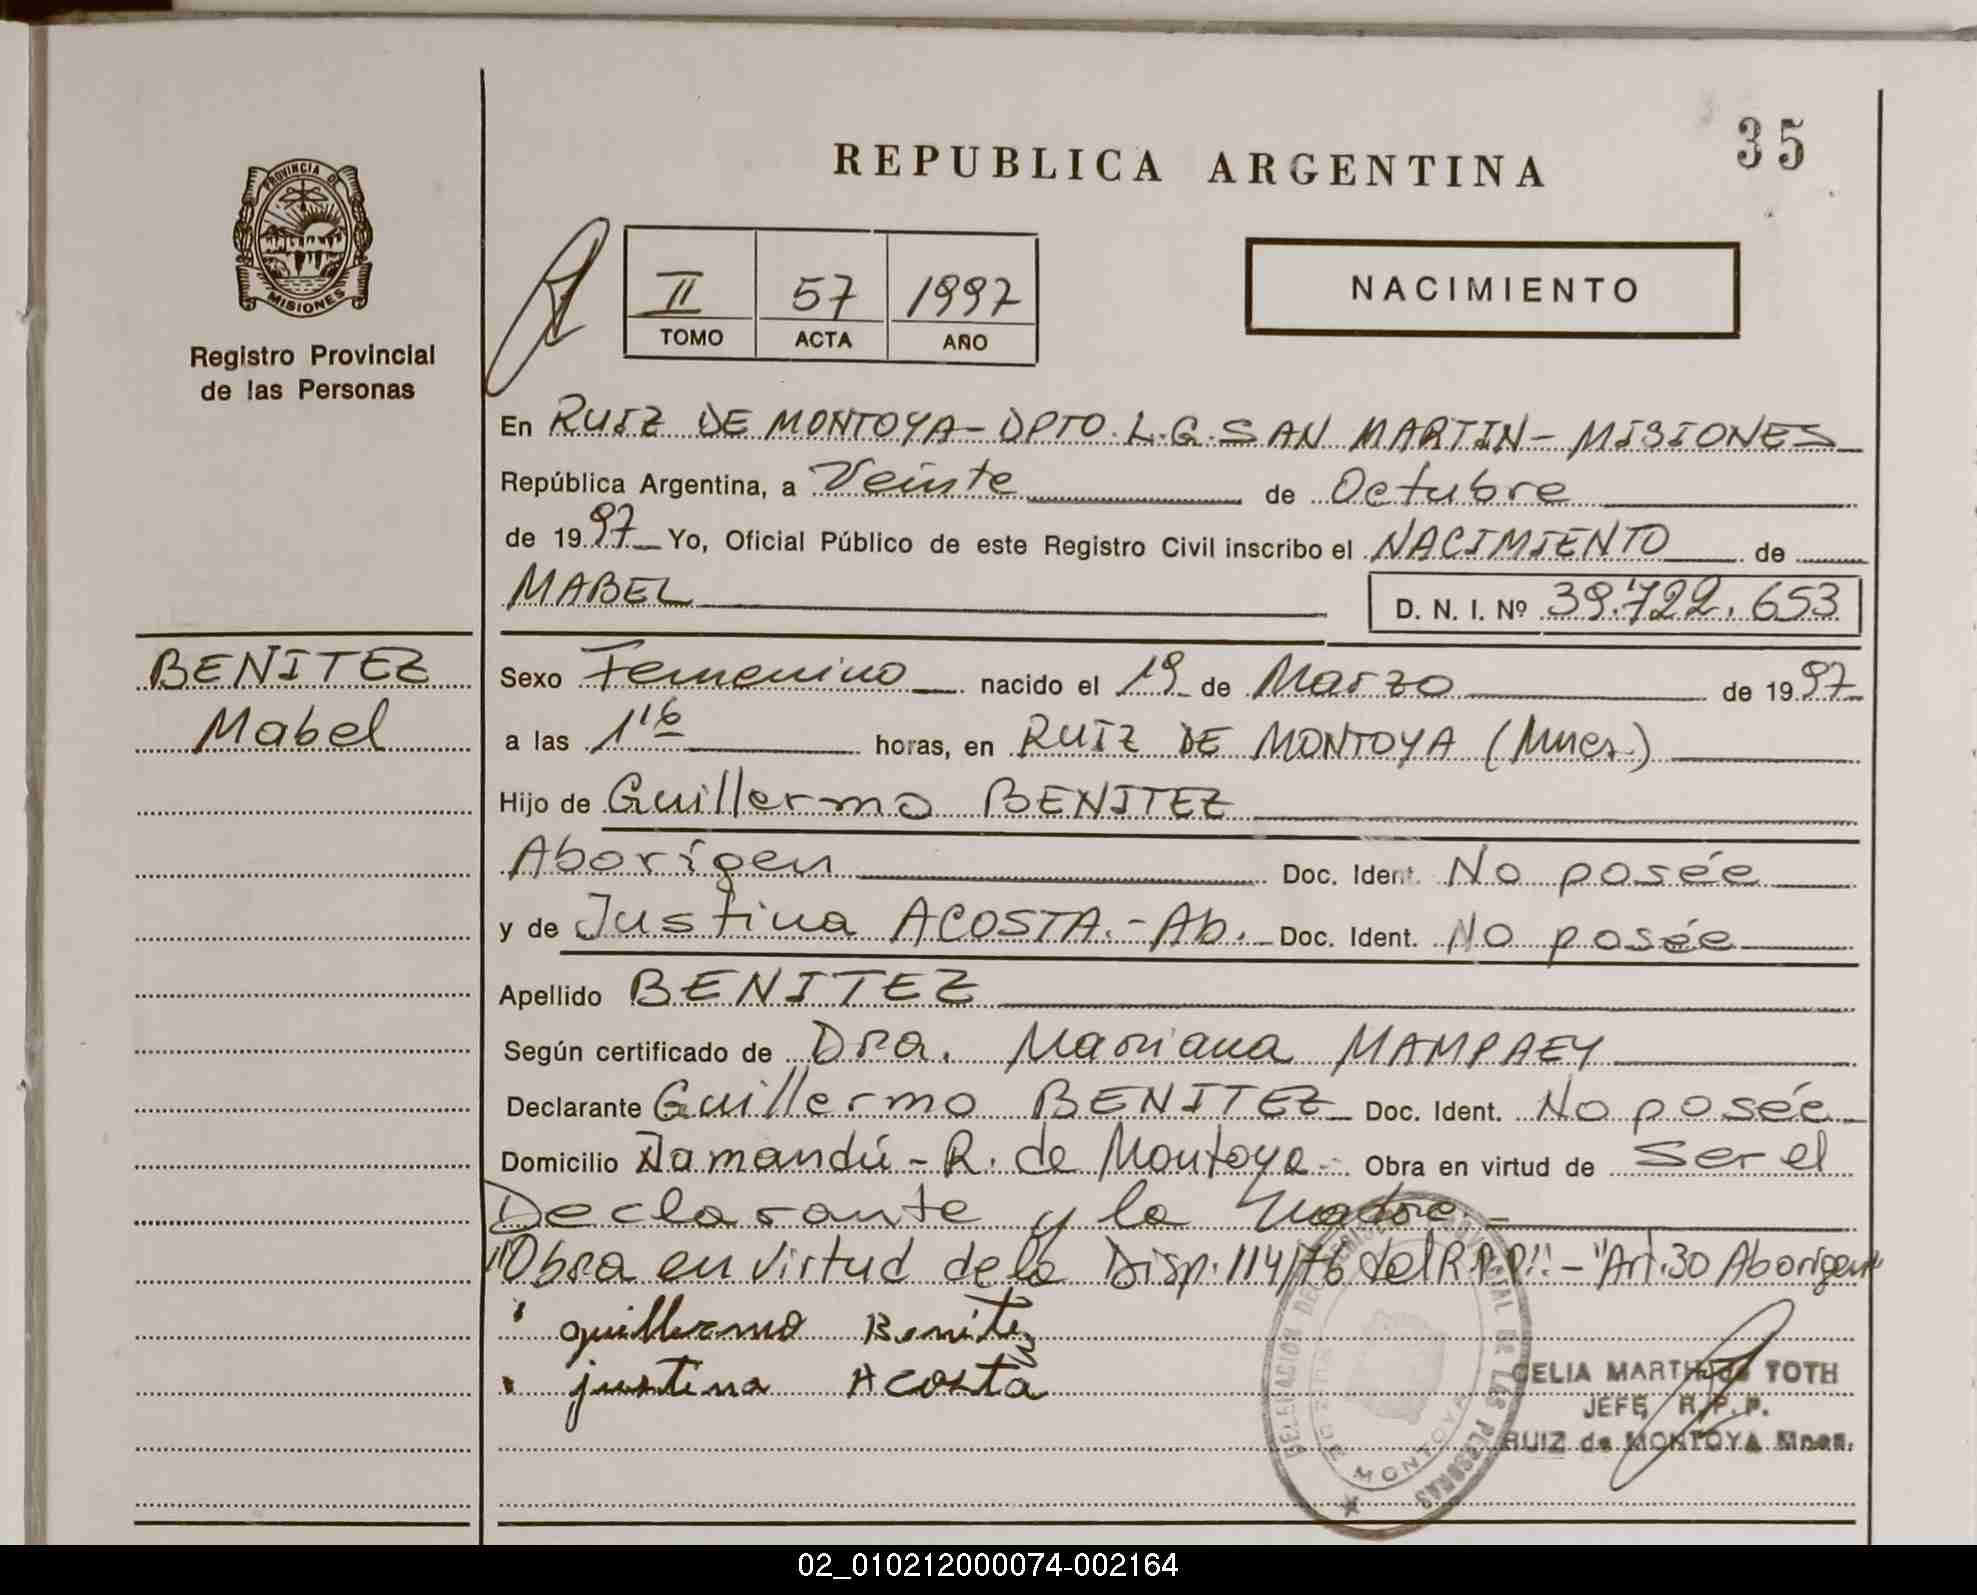 35
REPUBLICA ARGENTINA
PROVINCIA DE
MISIONES
Registro Provincial
de las Personas
II 57 1997
TOMO ACTA AÑO
NACIMIENTO
En RUIZ DE MONTOYA - DPTO. L.G. SAN MARTIN - MISIONES
República Argentina, a Veinte de Octubre
de 1997 Yo, Oficial Público de este Registro Civil inscribo el NACIMIENTO de
MABEL D. N. I. Nº 39.722.653
BENITEZ
Mabel
Sexo Femenino nacido el 19 de Marzo de 1997
a las 1'15 horas, en RUIZ DE MONTOYA (Mnes.)
Hijo de Guillermo BENITEZ
Aborigen Doc. Ident. No posée
y de Justina ACOSTA.- Ab. Doc. Ident. No posée
Apellido BENITEZ
Según certificado de Dra. Mariana MAMPAEY
Declarante Guillermo BENITEZ Doc. Ident. No posée
Domicilio Tamandú - R. de Montoya - Obra en virtud de ser el
Declarante y la Madre.-
"Obra en virtud de la Disp. 114/76 del R.P.P!! - "Art. 30 Aborigen"
guillermo Benitez
justina Acosta
DELEGACION DEL REGISTRO PROVINCIAL DE LAS PERSONAS
MONTOYA
CELIA MARTH de TOTH
JEFE R.P.P.
RUIZ de MONTOYA Mnes.
02_010212000074-002164